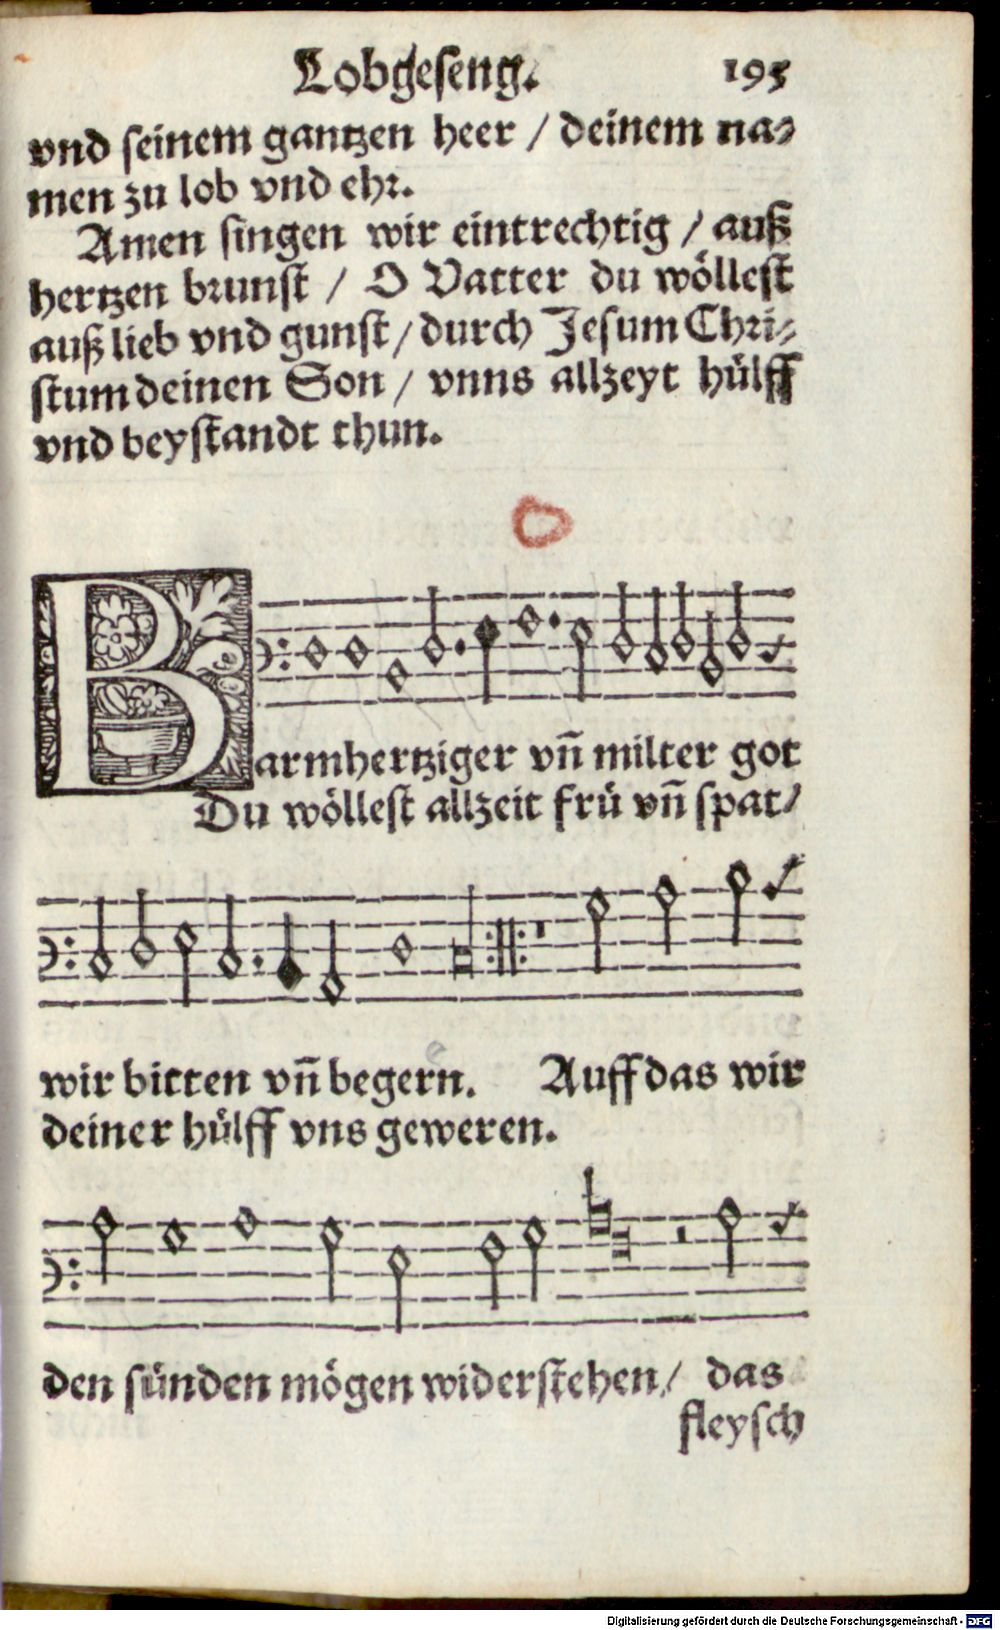 Lobgeseng. 195
vnd seinem gantzen heer / deinem na⸗
men zu lob vnd ehr.
Amen singen wir eintrechtig / auß
hertzen brunst / O Vatter du wöllest
auß lieb vnd gunst / durch Jesum Chri⸗
stum deinen Son / vnns allzeyt hülff
vnd beystandt thun.
Barmhertziger vñ milter got
Du wöllest allzeit frü vñ spat /
wir bitten vñ begern. Auff das wir
deiner hülff vns geweren.
den sünden mögen widerstehen / das
fleysch
Digitalisierung gefördert durch die Deutsche Forschungsgemeinschaft - DFG